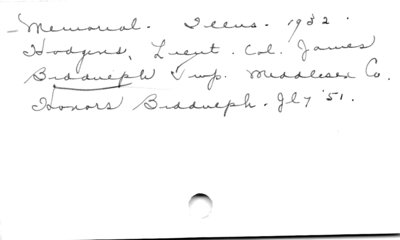 - Memorial. Illus. 1932.
Hodgins, Lieut. Col. James
Biddulph Twp. Middlesex Co.
Honors Biddulph. Jly '51.